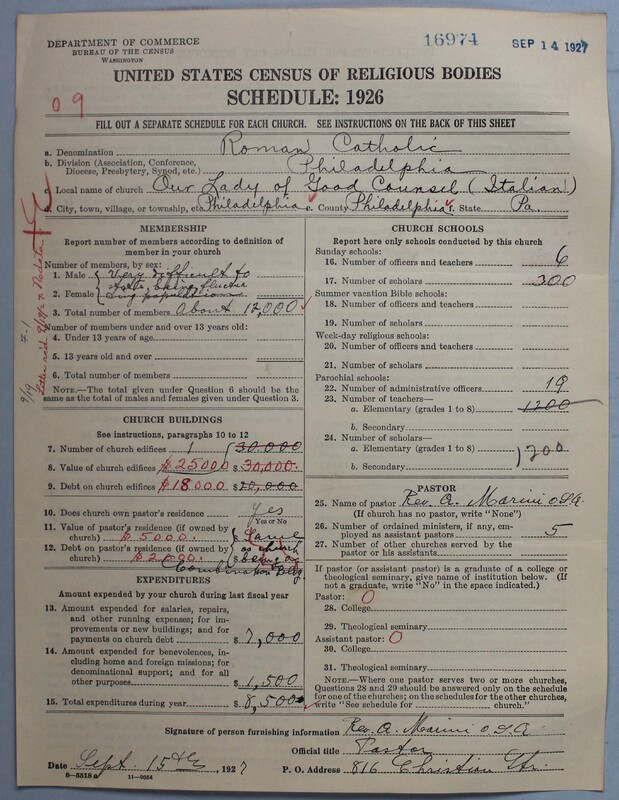 DEPARTMENT OF COMMERCE
BUREAU OF THE CENSUS
WASHINGTON
16974
SEP 14 1927
UNITED STATES CENSUS OF RELIGIOUS BODIES
SCHEDULE: 1926
09
FILL OUT A SEPARATE SCHEDULE FOR EACH CHURCH. SEE INSTRUCTIONS ON THE BACK OF THIS SHEET
a. Denomination Roman Catholic
b. Division (Association, Conference, Diocese, Presbytery, Synod, etc.) Philadelphia
c. Local name of church Our Lady of Good Counsel (Italian)
d. City, town, village, or township, etc. Philadelphia e. County Philadelphia f. State Pa.
MEMBERSHIP
Report number of members according to definition of
member in your church
Number of members, by sex:
1. Male Very difficult to
state, being fluctua
2. Female ting population
3. Total number of members About 12,000
Number of members under and over 13 years old:
4. Under 13 years of age
5. 13 years old and over
6. Total number of members
NOTE.—The total given under Question 6 should be the
same as the total of males and females given under Question 3.
CHURCH BUILDINGS
See instructions, paragraphs 10 to 12
7. Number of church edifices 1 30.000
8. Value of church edifices $25000 $ 30,000.
9. Debt on church edifices $18000 $ 20,000.
10. Does church own pastor's residence yes
Yes or No
11. Value of pastor's residence (if owned by
church) $5000. $ Same
12. Debt on pastor's residence (if owned by
church) $2000. $ as church
being a
Combination Bldg
EXPENDITURES
Amount expended by your church during last fiscal year
13. Amount expended for salaries, repairs,
and other running expenses; for im-
provements or new buildings; and for
payments on church debt $ 7,000
14. Amount expended for benevolences, in-
cluding home and foreign missions; for
denominational support; and for all
other purposes $ 1,500
15. Total expenditures during year $ 8,500
CHURCH SCHOOLS
Report here only schools conducted by this church
Sunday schools:
16. Number of officers and teachers 6
17. Number of scholars 300
Summer vacation Bible schools:
18. Number of officers and teachers
19. Number of scholars
Week-day religious schools:
20. Number of officers and teachers
21. Number of scholars
Parochial schools:
22. Number of administrative officers 19
23. Number of teachers—
a. Elementary (grades 1 to 8) 1200
b. Secondary
24. Number of scholars—
a. Elementary (grades 1 to 8)
b. Secondary
PASTOR
25. Name of pastor Rev. A. Marini O.S.A.
(If church has no pastor, write "None")
26. Number of ordained ministers, if any, em-
ployed as assistant pastors 5
27. Number of other churches served by the
pastor or his assistants
If pastor (or assistant pastor) is a graduate of a college or
theological seminary, give name of institution below. (If
not a graduate, write "No" in the space indicated.)
Pastor: 0
28. College
29. Theological seminary
Assistant pastor: 0
30. College
31. Theological seminary
NOTE.—Where one pastor serves two or more churches,
Questions 28 and 29 should be answered only on the schedule
for one of the churches; on the schedules for the other churches,
write "See schedule for church."
Signature of person furnishing information Rev. A. Marini O.S.A.
Official title Pastor
Date Sept. 15th, 1927 P. O. Address 816 Christian Str.
8—5518 a 11—9054